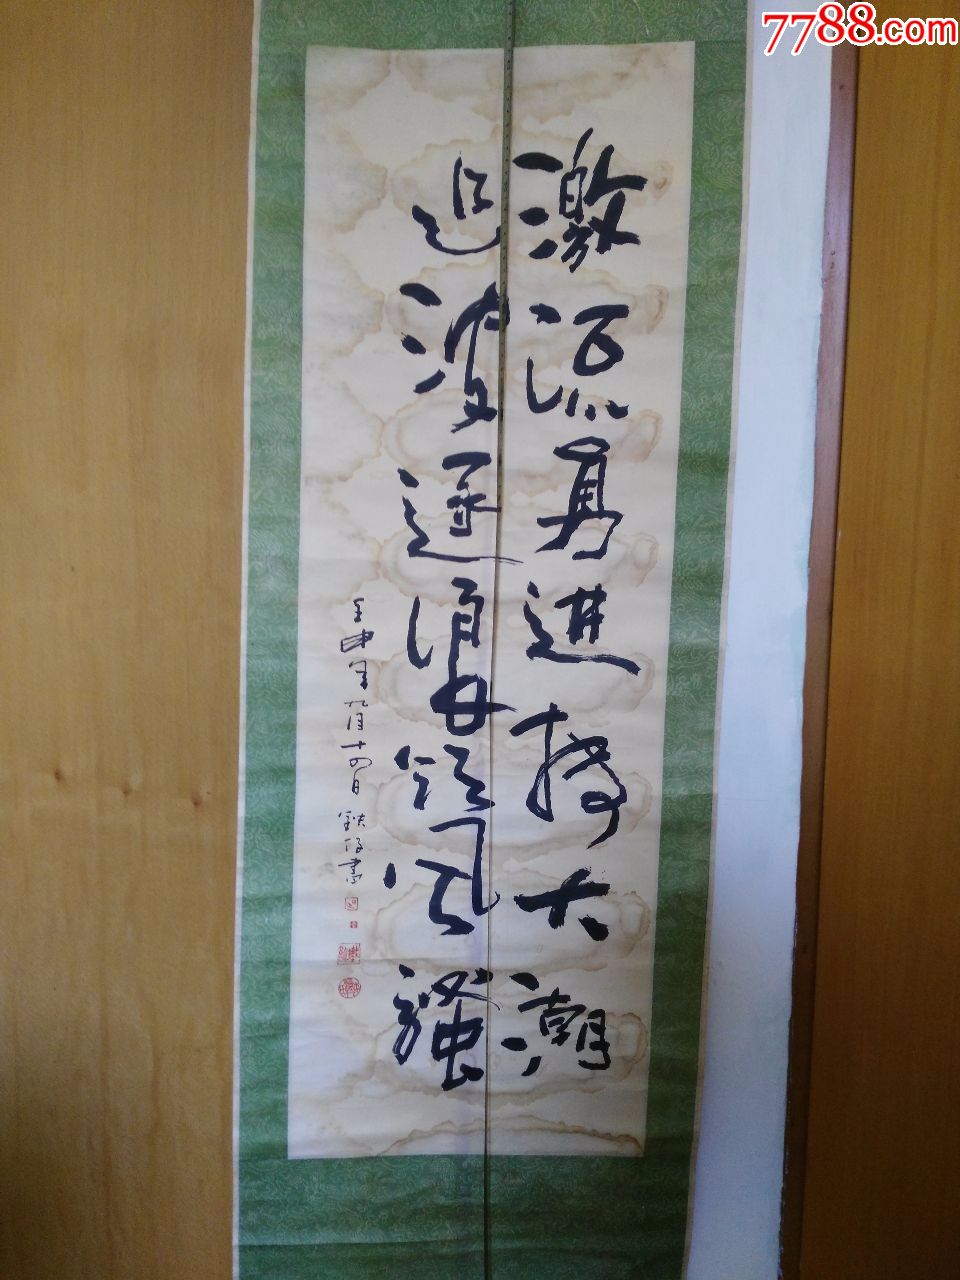 7788.com
激流勇进搏大潮
追波逐浪领风骚
壬申年九月十四日 書